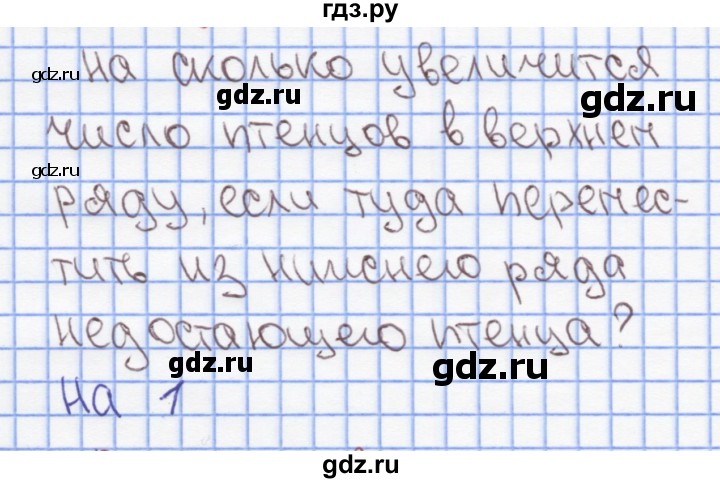 гдз.ру
На сколько увеличится
число птенцов в верхнем
ряду, если туда перенес-
тить из нижнего ряда
недостающего птенца?
На 1
gdz.ru
gdz.ru
gdz.ru
gdz.ru
gdz.ru
gdz.ru
gdz.ru